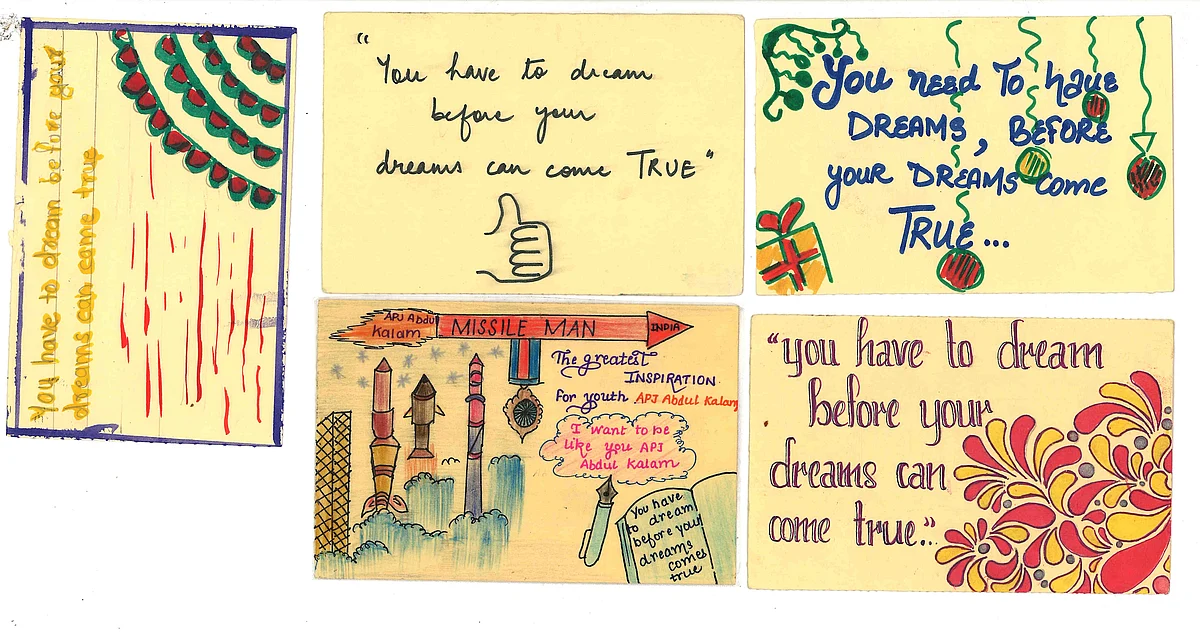 You have to dream before your
dreams can come true
"You have to dream
before your
dreams can come TRUE"
You need To have
DREAMS, BEFORE
your DREAMS come
TRUE...
APJ Abdul
Kalam
MISSILE MAN
INDIA
The greatest
INSPIRATION
For youth APJ Abdul Kalam
I want to be
like you APJ
Abdul Kalam
You have
to dream
before your
dreams
comes
true
"you have to dream
before your
dreams can
come true."